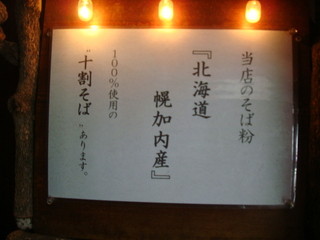 当店のそば粉
『北海道
幌加内産』
100%使用の
"十割そば"あります。